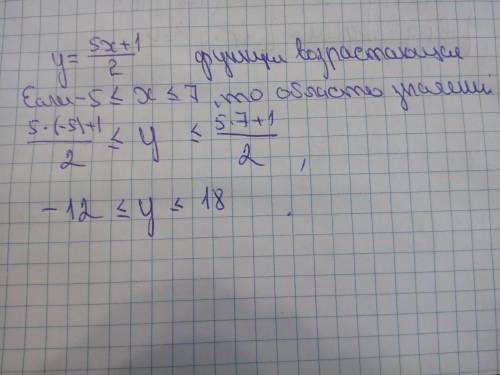 y = \frac{5x+1}{2} функция возрастающая
Если -5 ≤ x ≤ 7, то область значений
\frac{5·(-5)+1}{2} ≤ y ≤ \frac{5·7+1}{2},
-12 ≤ y ≤ 18.